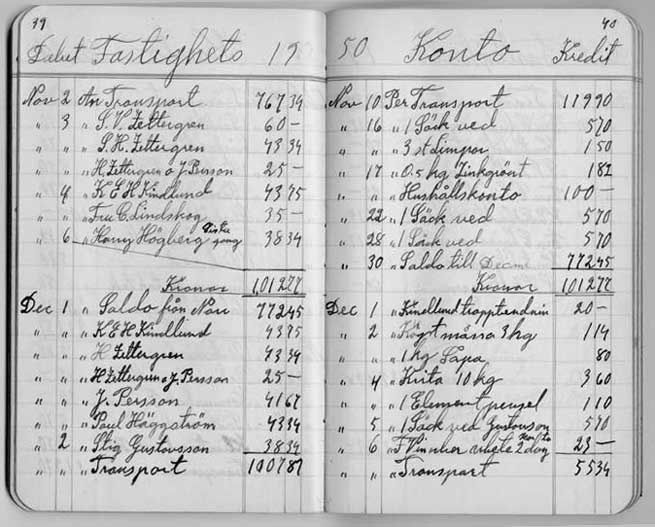 39
Debet Fastighets 19
Nov 2 An Transport 767 34
" 3 " S. V. Zettergren 60 —
" " " S. H. Zettergren 43 34
" " " H Zettergren o J. Persson 25 —
" 4 " K E H Kindlund 43 75
" " " Fru C. Lindskog 35 —
" 6 " Harry Högberg 38 34
Kronor 1012 77
Dec 1 " Saldo från Nov 772 45
" " " K E H Kindlund 43 75
" " " H Zettergren 43 34
" " " H Zettergren o J. Persson 25 —
" " " J. Persson 41 67
" " " Paul Häggström 43 34
" 2 " Stig Gustavsson 38 34
" " " Transport 1007 87
40
50 Konto Kredit
Nov 10 Per Transport 119 90
" 16 " 1 Säck ved 5 70
" " " 3 st Limpor 1 50
" 17 " 0.5 kg Zinkgrönt 1 82
" " " Hushållskonto 100 —
" 22 " 1 Säck ved 5 70
" 28 " 1 Säck ved 5 70
" 30 " Saldo till Decm 772 45
Kronor 1012 77
Dec 1 " Kindlund 20 —
" 2 " 3 kg 1 14
" " " 1 kg Såpa 80
" 4 " Krita 10 kg 3 60
" " " 1 Elementpensel 1 10
" 5 " 1 Säck ved Gustavsson 5 70
" 6 " 2 dag 23 —
" " " Transport 55 34